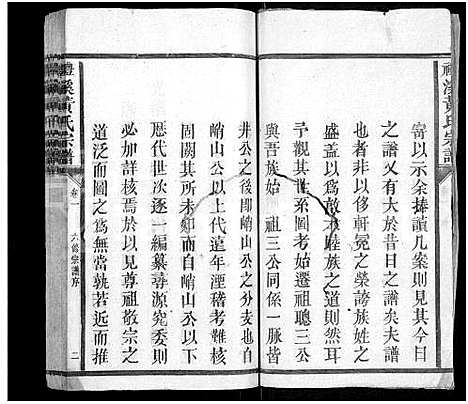 禮溪黃氏宗譜
寄以示余捧讀几案則見其今日
之譜又有大於昔日之譜矣夫譜
也者非以侈軒冕之榮誇族姓之
盛蓋以為敦宗睦族之道則然耳
予觀其世系圖考歷遷祖聰三公
與吾族始 祖三公同係一脉皆
井公之後即峭山公之分支也
峭山公以上代遠年湮稽考難核
固闕其所未知而自峭山公以下
歷代世次逐一編纂尋源究委則
必加詳核焉於以見尊祖敬宗之
道泛而圖之為無當孰若近而推
禮溪黃氏宗譜
卷一 六修宗譜序 二